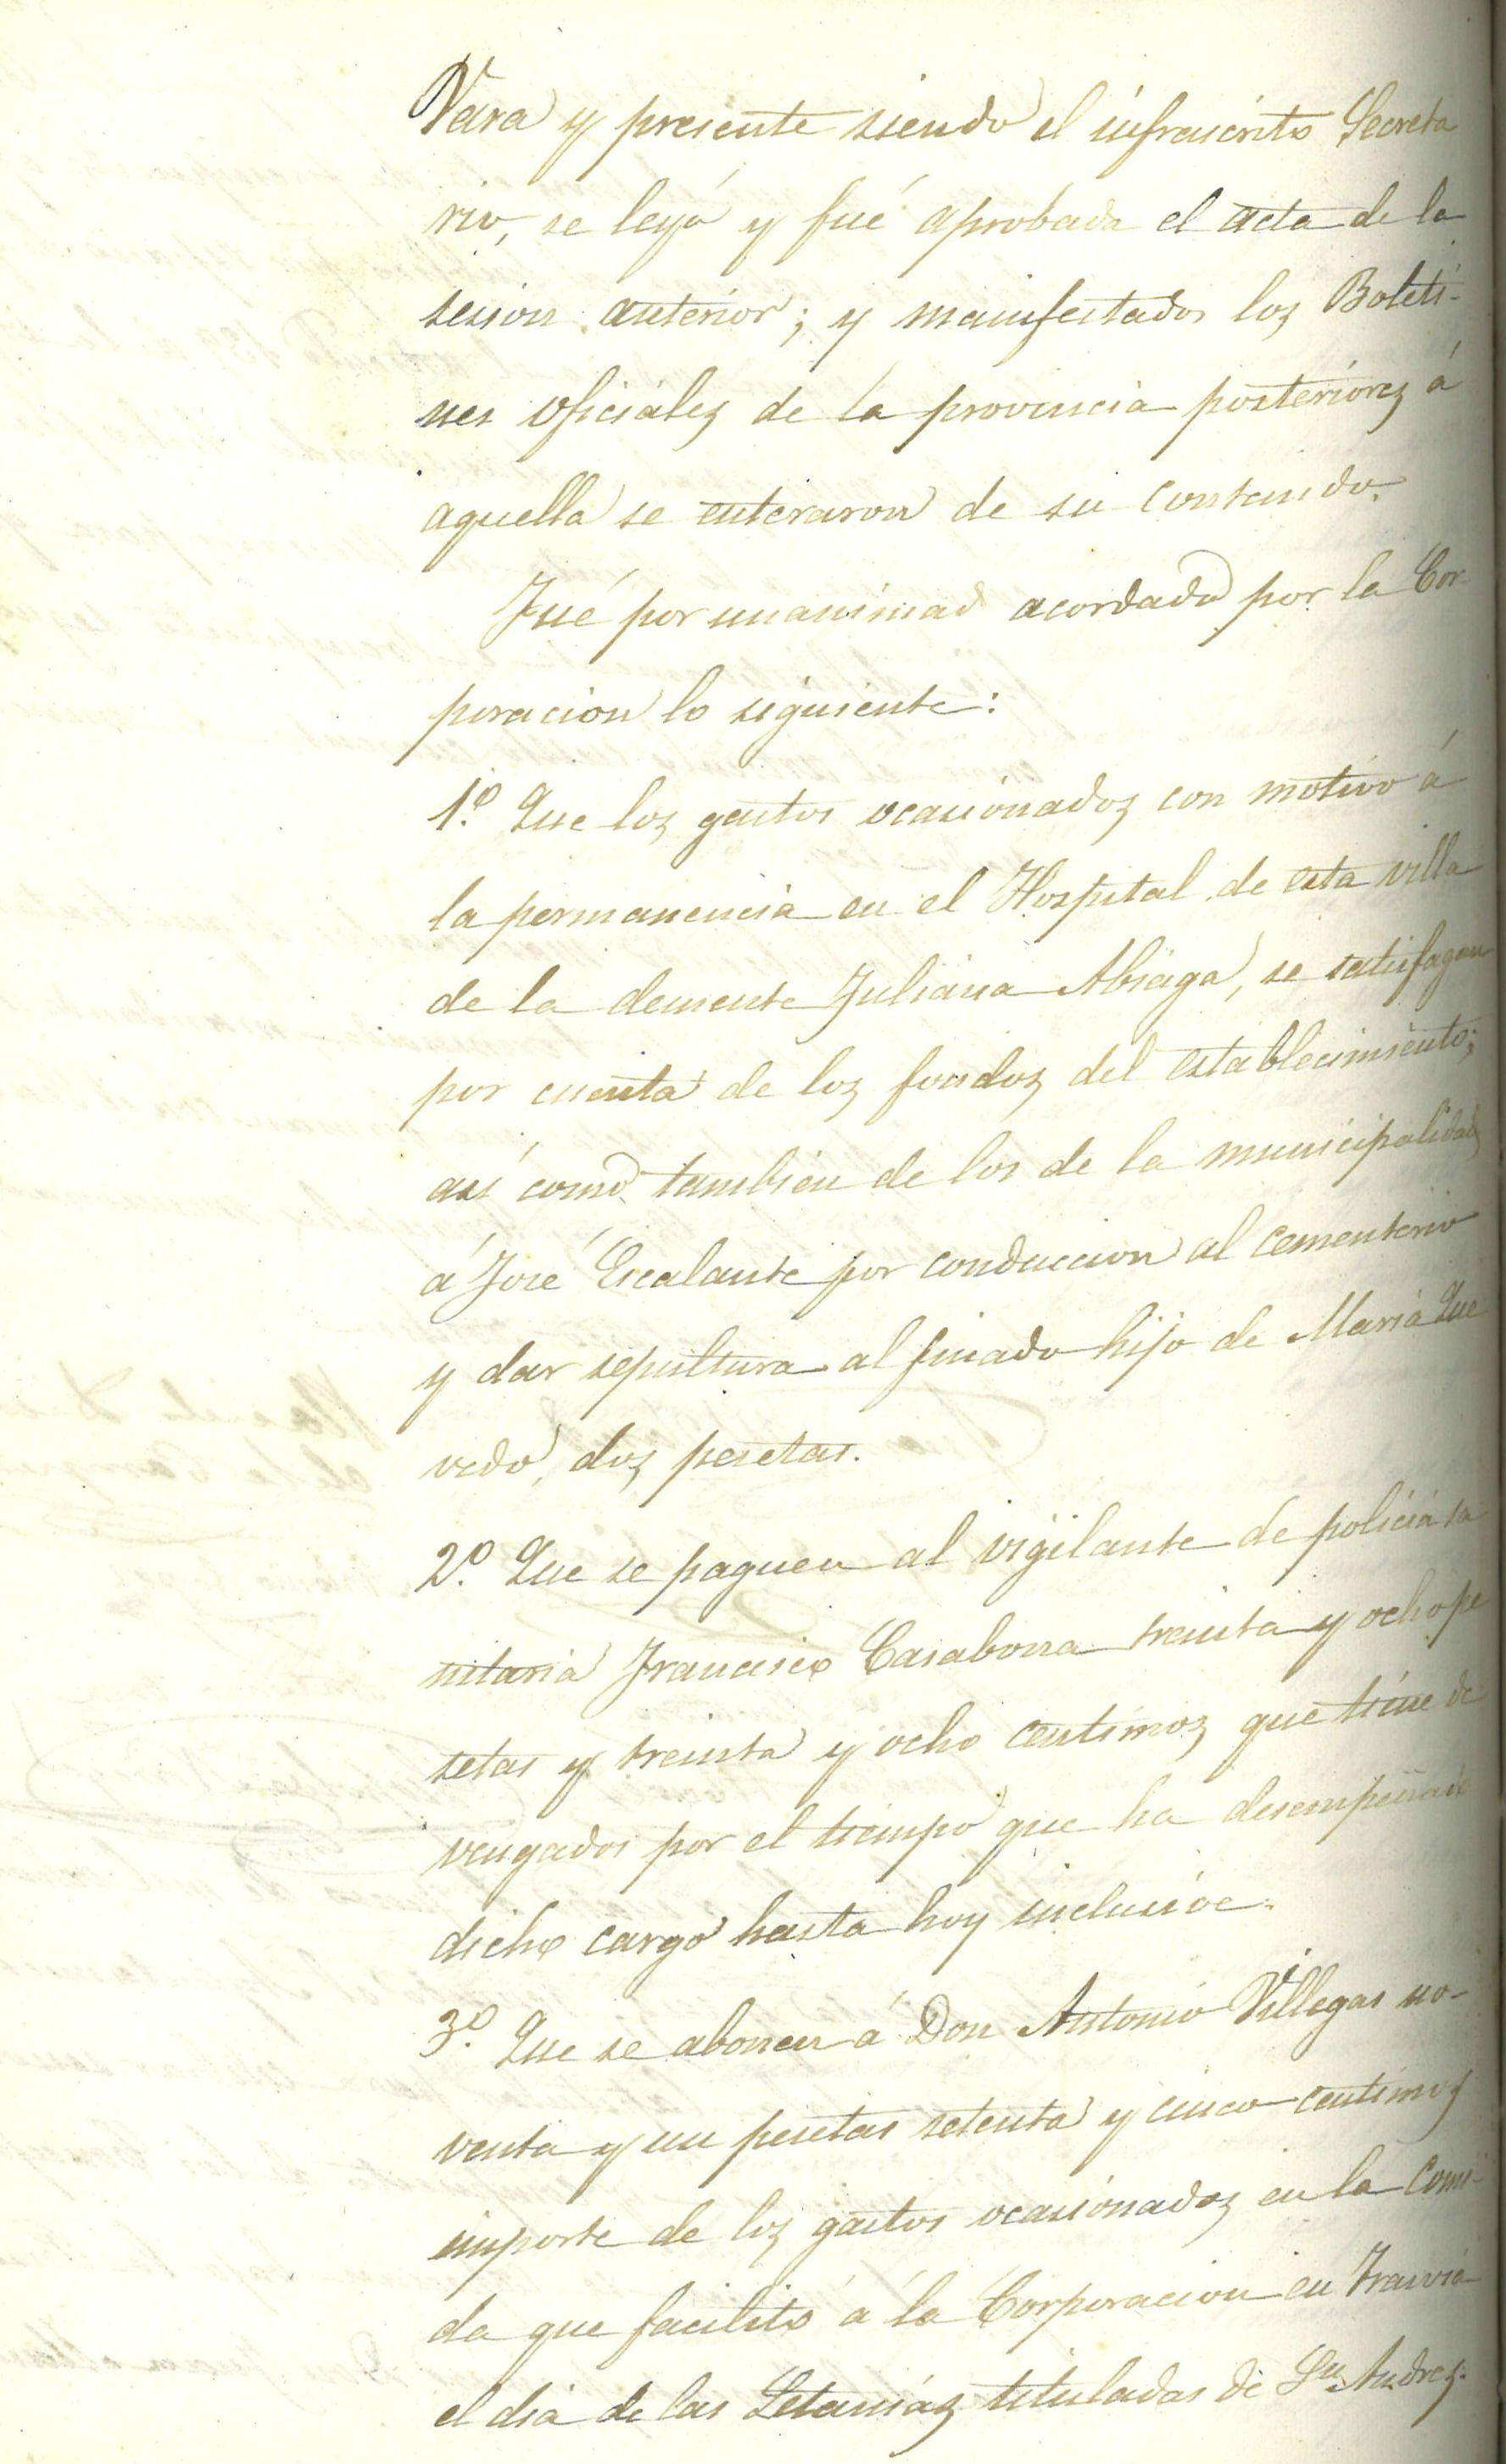 Vara y presente siendo el infrascrito Secreta
rio, se leyó y fué aprobada el acta de la
sesion anterior; y manifestados los Boleti-
nes oficiales de la provincia posteriores á
aquella se enteraron de su contenido.
Fué por unanimad acordado por la Cor-
poracion lo siguiente:
1º. Que los gastos ocasionados con motivo á
la permanencia en el Hospital de esta villa
de la demente Juliana Abiega, se satisfagan
por cuenta de los fondos del establecimiento;
así como tambien de los de la municipalidad
á José Escalante por conduccion al cementerio
y dar sepultura al finado hijo de Maria Que
vedo, dos pesetas.
2º. Que se paguen al vigilante de policia sa
nitaria Francisco Casabona treinta y ocho pe
setas y treinta y ocho centimos que tiene de
vengados por el tiempo que ha desempeñado
dicho cargo hasta hoy inclusive.
3º. Que se abonen á Don Antonio Villegas no-
venta y un pesetas setenta y cinco centimos
importe de los gastos ocasionados en la comi-
da que facilitó á la Corporacion en
el dia de las Letanias tituladas de Sn. Andres.